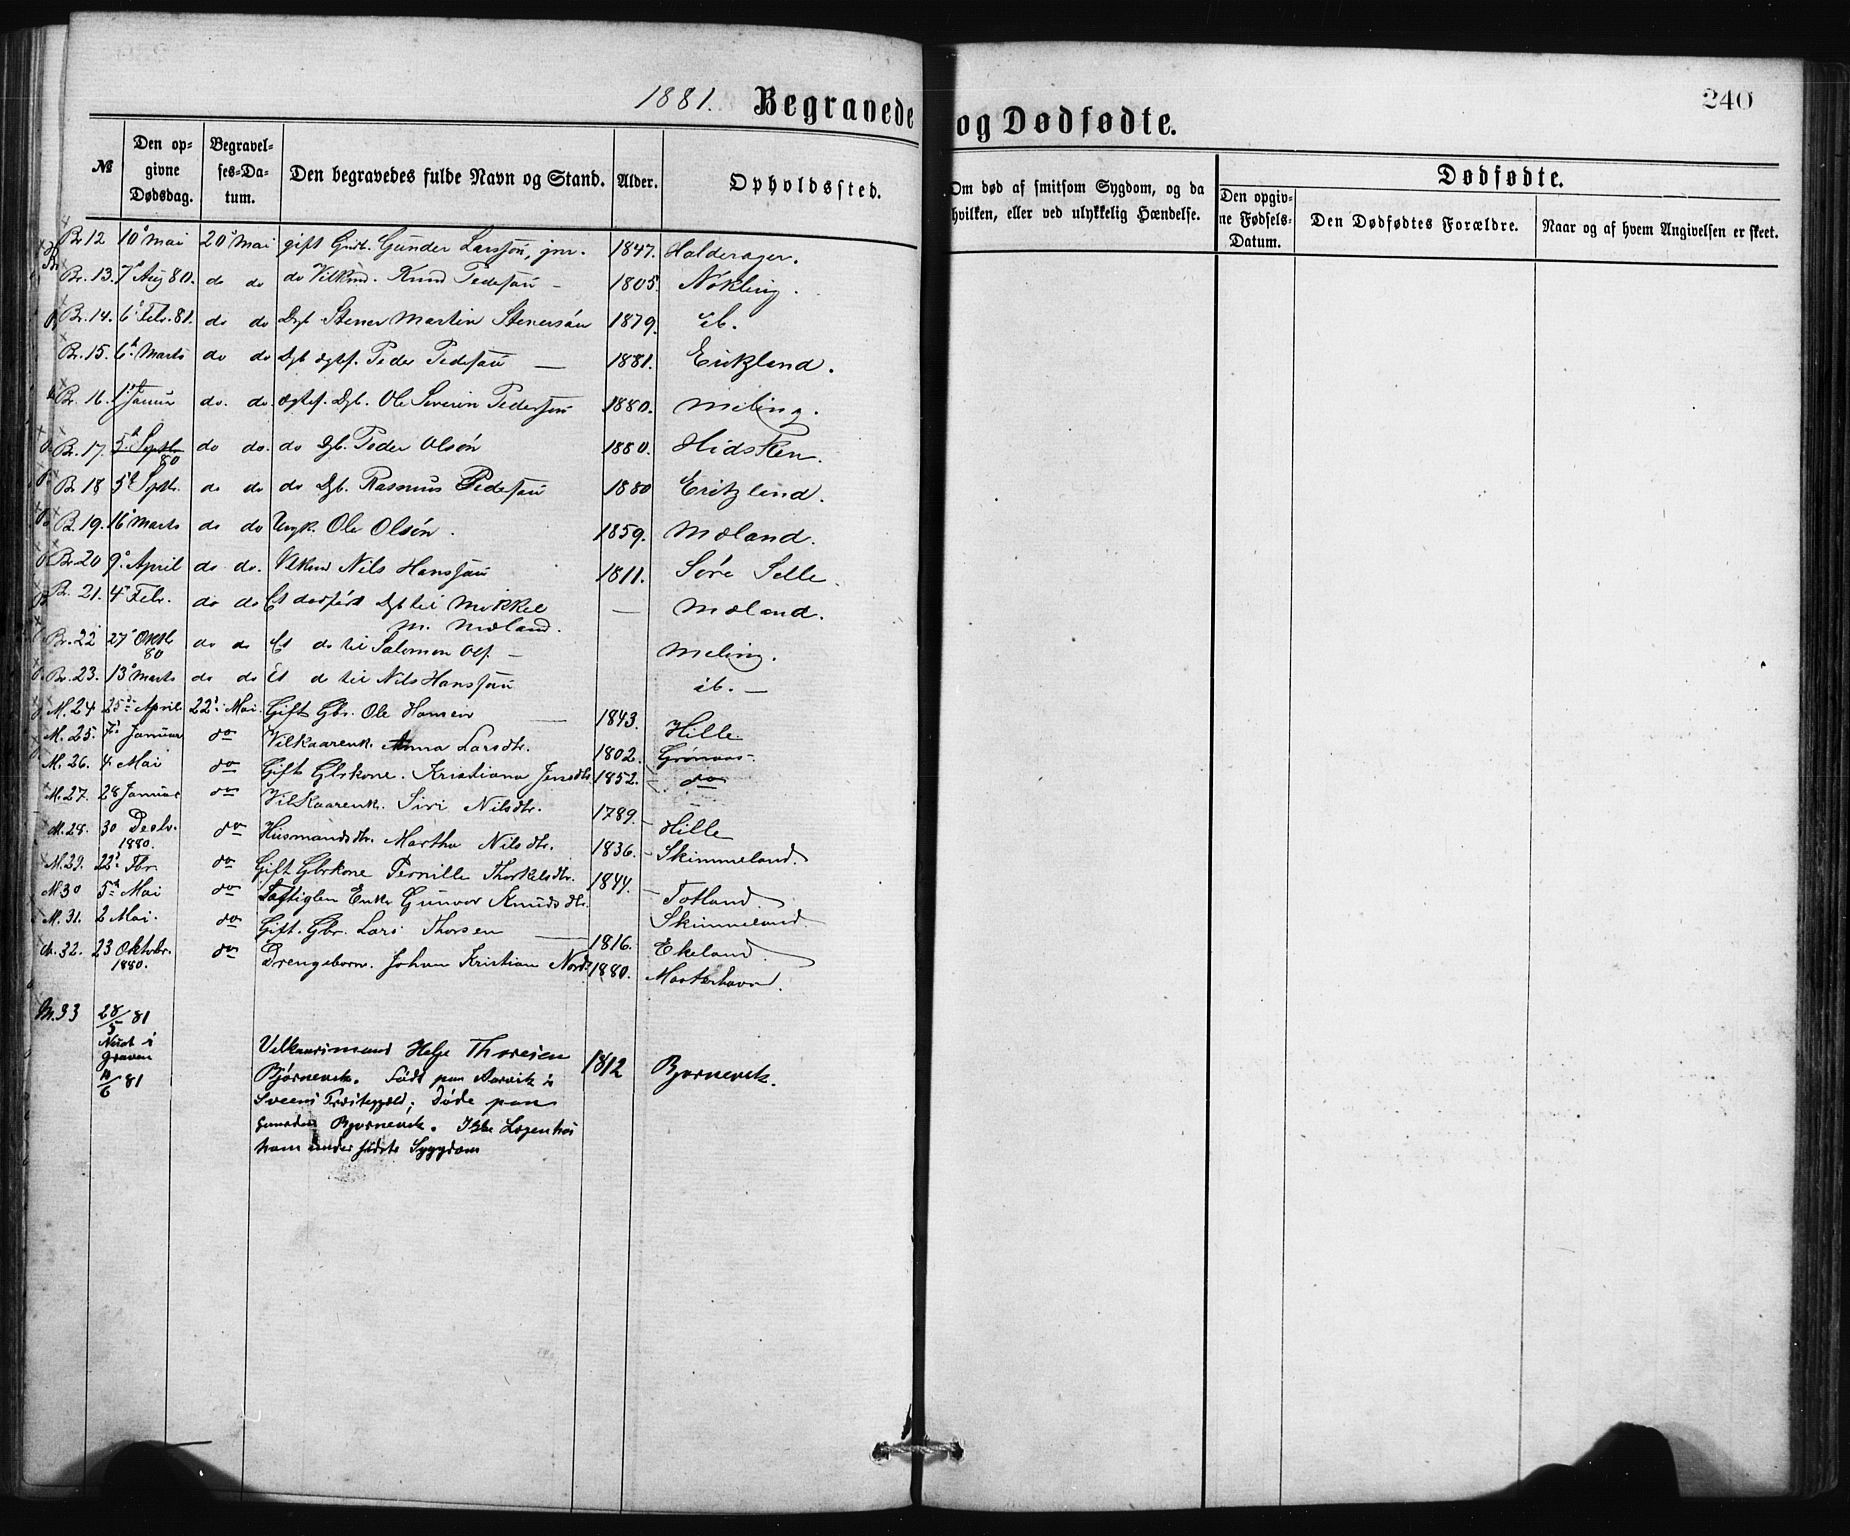 1881. Begravede og Dødfødte. 240
№ Den opgivne Dødsdag. Begravelses-Datum. Den begravedes fulde Navn og Stand. Alder. Opholdssted. Om død af smitsom Sygdom, og da hvilken, eller ved ulykkelig Hændelse. Dødfødte.
Den opgivne Fødsels-Datum. Den Dødfødtes Forældre. Naar og af hvem Angivelsen er skeet.
Br. 12 10 Mai 20 Mai gift Gunder Larssøn, jnr. 1847. Halderager.
Br. 13. 7 Aug 80. do do do Vilkmd. Knud Pedersøn 1805. Nökling.
Br. 14. 6 Febr. 81. do do Dgb Stener Martin Stenersøn 1879. ib.
Br. 15. 6 Marts do do Dgb ægtef. Peder Pedersøn 1881. Erikzland.
Br. 16. 1 Januar do. do. ægtef. Dgb. Ole Severin Pedersøn 1880. Meling.
Br. 17. 5 Septbr 80 do do. do Dgb. Peder Olsøn 1880. Hidsken.
Br 18 5 Septr. do do do Dgb. Rasmus Pedersøn 1880 Erikzland.
B. 19. 16 Marts do do Ungk. Ole Olsøn. 1859. Mæland.
Br. 20 9 April do do. Vlkmd Nils Hanssøn 1811. Søre Selle
Br. 21. 4 Febr. do do Et dødfødt Dgb til Mikkel M. Mæland. — Mæland.
Br. 22 27 Oktb 80 do do Et do til Salomon Olf. — Meling.
Br. 23. 13 Marts do do Et d til Nils Hanssøn ib. —
M. 24 25 April 22 Mai. Gift Gbr. Ole Hansen 1843. Hille
M. 25. 7 Januar do Vilkaarenk. Anna Larsdtr. 1802. Grönaas
M. 26. 4 Mai do Gift Gbrkone. Kristiana Jensdtr 1852. do
M. 27. 28 Januar do Vilkaarenk. Siri Nilsdtr. 1789. Hille
M. 28. 30 Decbr. 1880. do Husmandsdtr. Martha Nilsdtr. 1836. Skimmeland.
M. 29. 22 Fbr. do Gift Gbrkone Pernille Thorkelsdtr. 1844. Totland.
M. 30 5 Mai do Enke Gunvor Knudsdtr. Skimmeland.
M. 31. 2 Mai. do Gift. Gbr. Lars Thorsen 1816. Ekeland.
M. 32. 23 Oktobr. 1880. do Drengebarn. Johan Kristian Nord 1880. Mosterhavn.
M. 33 28/5 81
Nedst i
Graven
/6 81
Velkaarsmand Helje Thoresen 1812 Bjornevik.
Bjørnevik. Født paa Aarvik i
Sveens Præstegjeld; Døde paa
Gaarden Bjornevik. Ikke Lægen hos
ham under sidste Sygdom